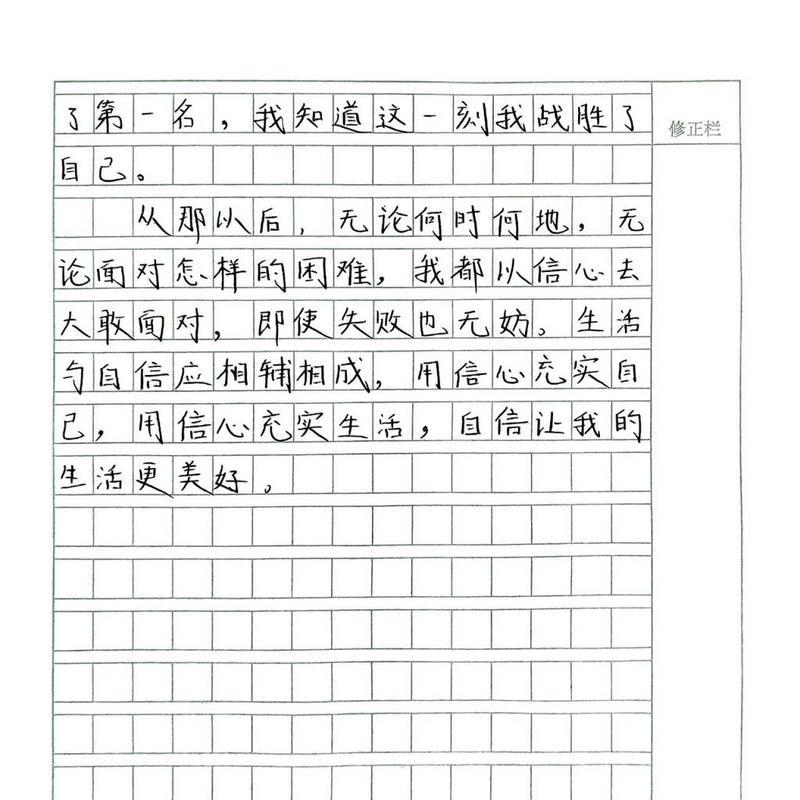 了第一名，我知道这一刻我战胜了
修正栏
自己。
从那以后，无论何时何地，无
论面对怎样的困难，我都以信心去
大敢面对，即使失败也无妨。生活
与自信应相辅相成，用信心充实自
己，用信心充实生活，自信让我的
生活更美好。